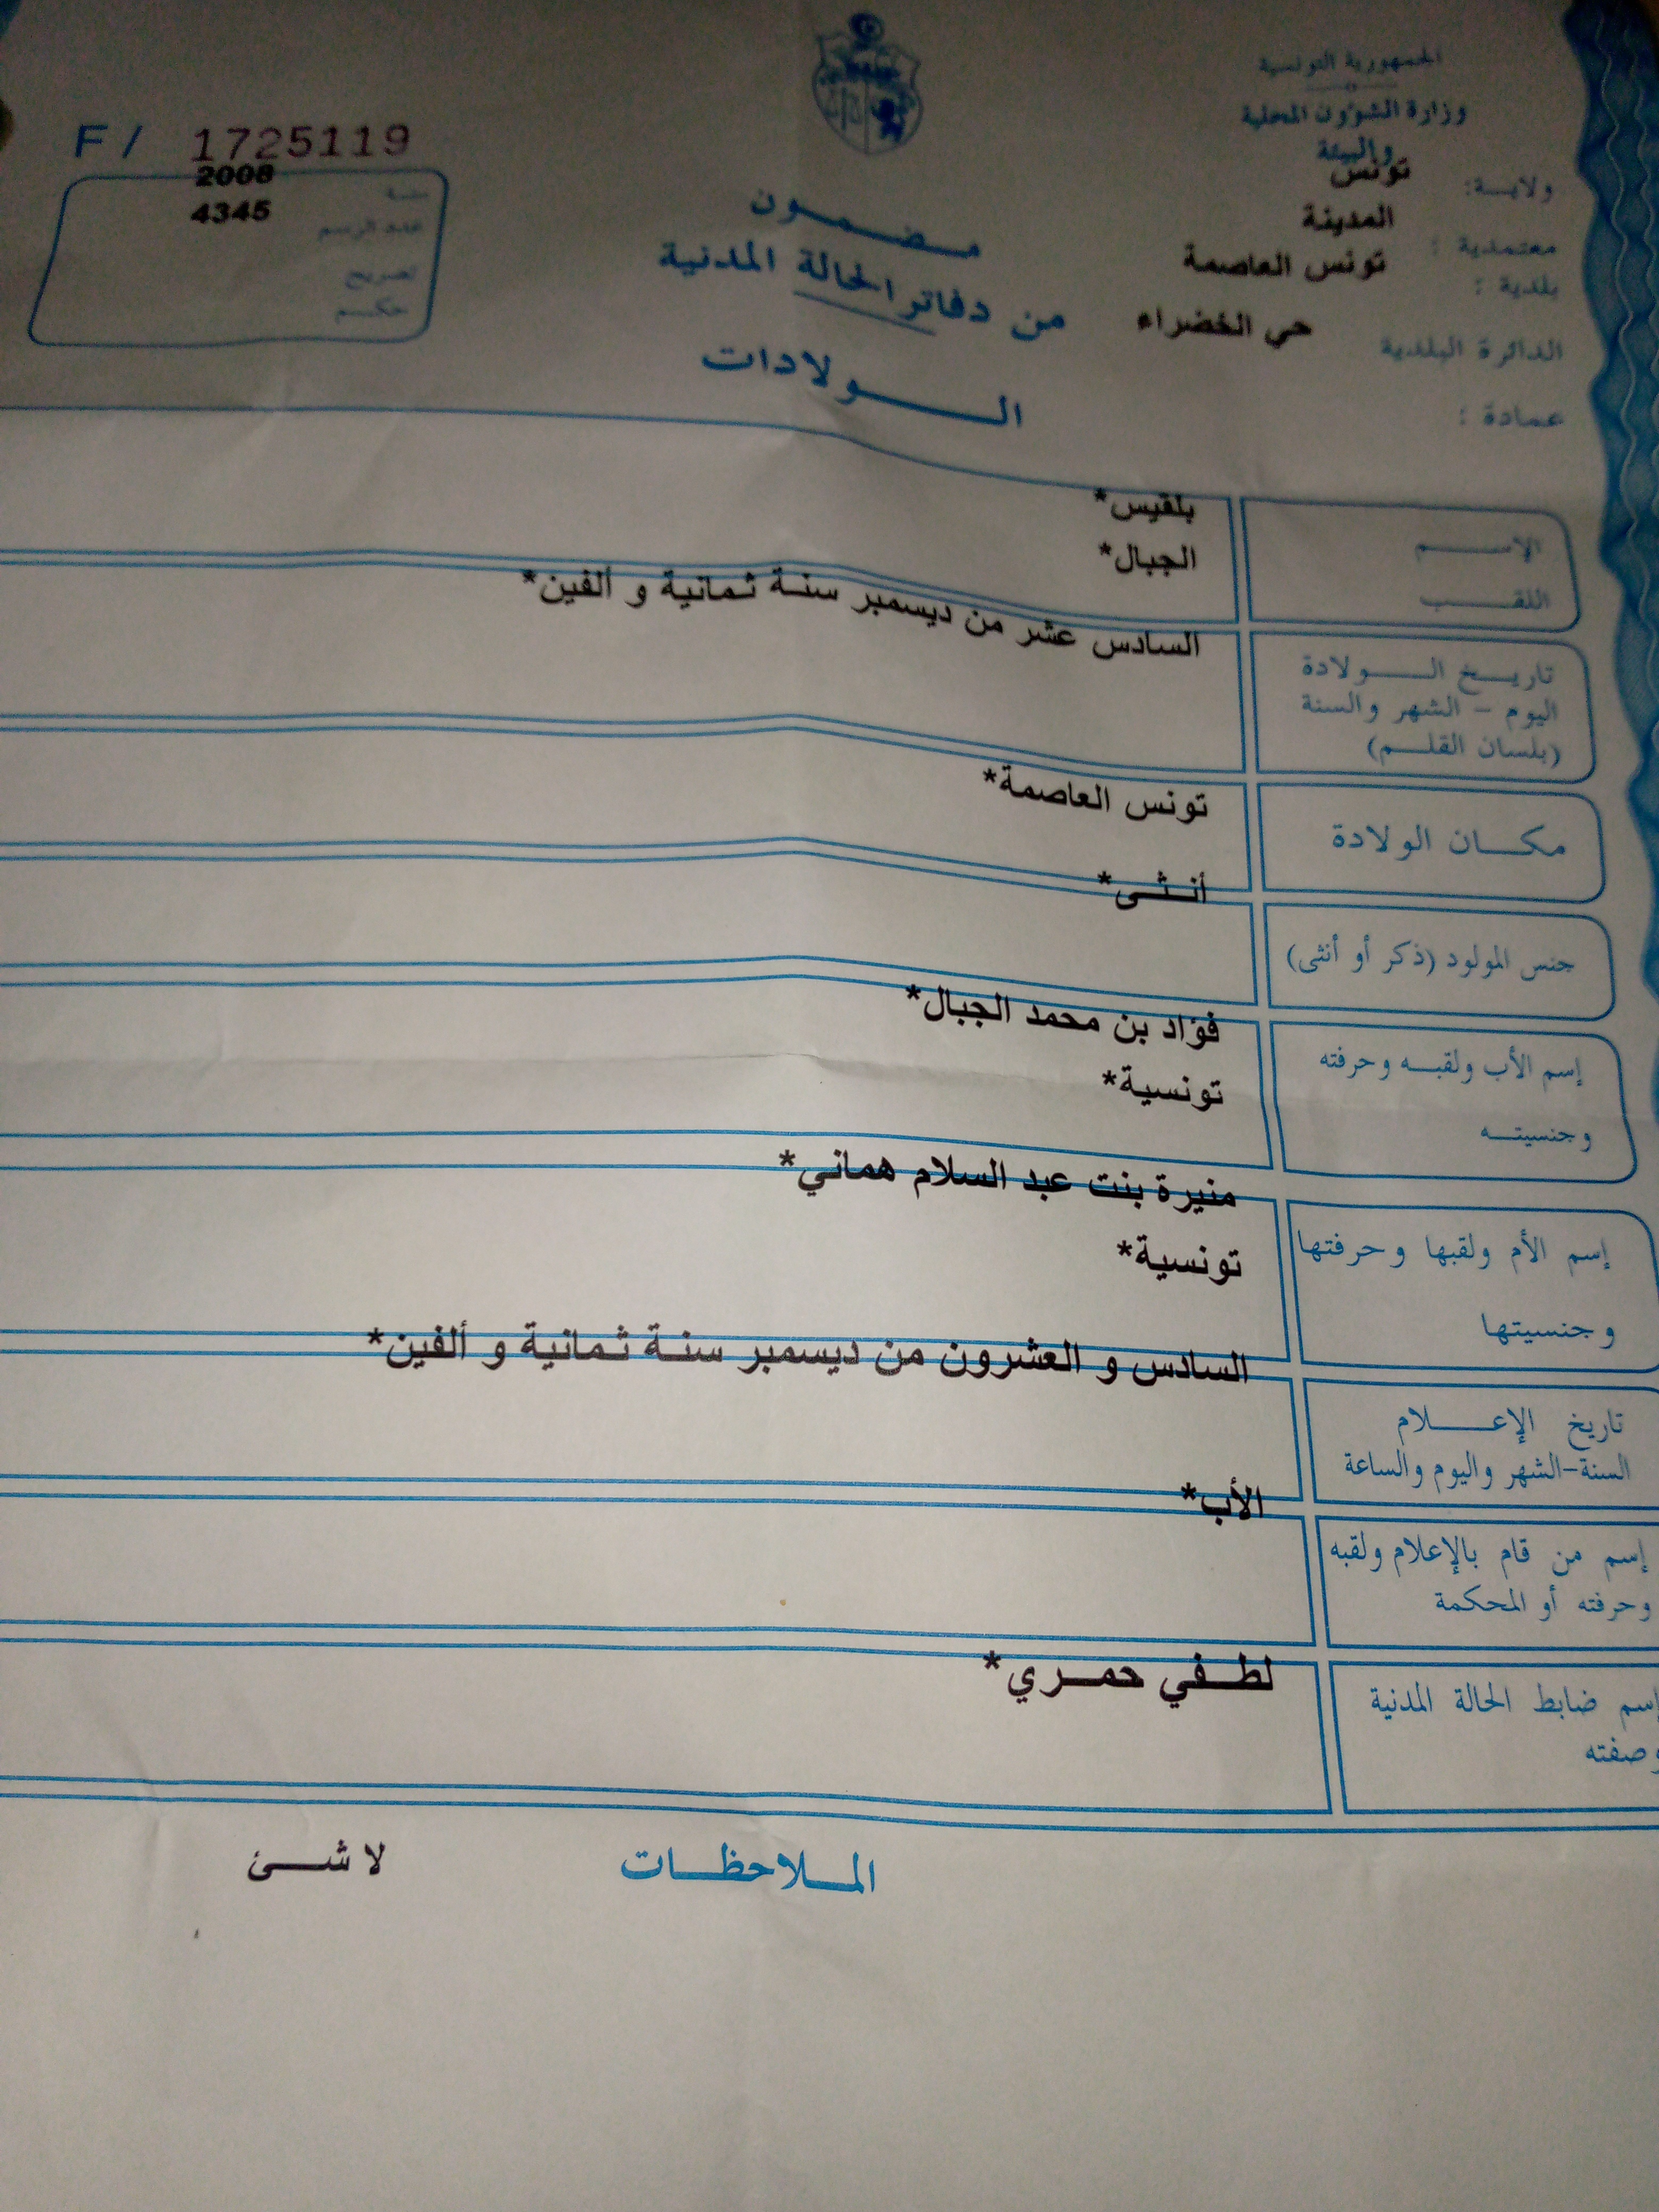 الجمهورية التونسية
وزارة الشؤون المحلية
والبيئة
ولايـــة: تونس
معتمدية : المدينة
بلدية : تونس العاصمة
الدائرة البلدية حي الخضراء
عمادة :
F / 1725119
سنة 2008
عدد الرسم 4345
تصريح
حكم
مضمون
من دفاتر الحالة المدنية
الولادات
الإسم بلقيس*
اللقب الجبال*
تاريخ الولادة السادس عشر من ديسمبر سنة ثمانية و ألفين*
اليوم - الشهر والسنة
(بلسان القلم)
مكان الولادة تونس العاصمة*
جنس المولود (ذكر أو أنثى) أنثى*
إسم الأب ولقبه وحرفته فؤاد بن محمد الجبال*
وجنسيته تونسية*
إسم الأم ولقبها وحرفتها منيرة بنت عبد السلام هماني*
وجنسيتها تونسية*
تاريخ الإعلام السادس و العشرون من ديسمبر سنة ثمانية و ألفين*
السنة-الشهر واليوم والساعة
إسم من قام بالإعلام ولقبه الأب*
وحرفته أو المحكمة
إسم ضابط الحالة المدنية لطفي حمري*
وصفته
الملاحظات لا شئ